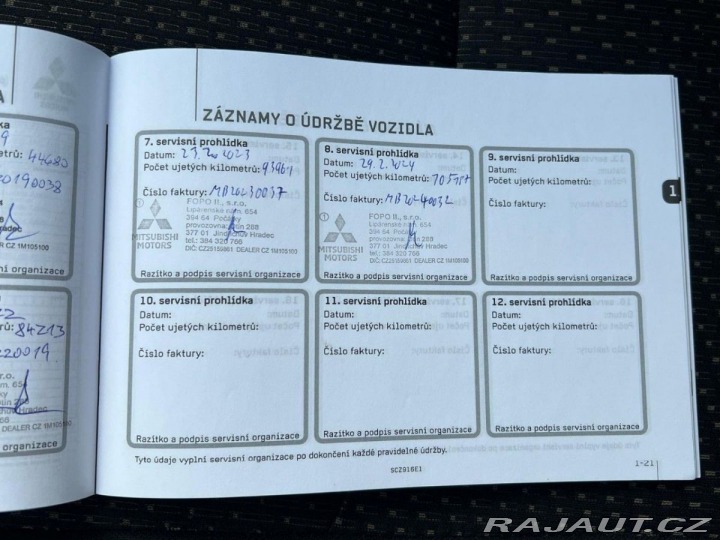 A
ka
9
etrů: 44680
20190038
a
9 DEALER CZ 1M105100
organizace
22
rů: 84213
220019
.r.o.
nm. 654
9 DEALER CZ 1M105100
organizace
ZÁZNAMY O ÚDRŽBĚ VOZIDLA
7. servisní prohlídka
Datum: 23.2.2023
Počet ujetých kilometrů: 93961
Číslo faktury: MB20230037
FOPO II., s.r.o.
Lipárenské nám. 654
394 64 Počátky
provozovna: 288
377 01 Jindřichův Hradec
tel.: 384 320 766
DIČ: CZ25159861 DEALER CZ 1M105100
MITSUBISHI
MOTORS
Razítko a podpis servisní organizace
8. servisní prohlídka
Datum: 29.2.2024
Počet ujetých kilometrů: 105917
Číslo faktury: MB20240032
FOPO II., s.r.o.
654
394 64 Počátky
provozovna: 288
377 01 Jindřichův Hradec
tel.: 384 320 766
DIČ: CZ25159861 DEALER CZ 1M105100
MITSUBISHI
MOTORS
Razítko a podpis servisní organizace
9. servisní prohlídka
Datum:
Počet ujetých kilometrů:
Číslo faktury:
Razítko a podpis servisní organizace
1
10. servisní prohlídka
Datum:
Počet ujetých kilometrů:
Číslo faktury:
Razítko a podpis servisní organizace
11. servisní prohlídka
Datum:
Počet ujetých kilometrů:
Číslo faktury:
Razítko a podpis servisní organizace
12. servisní prohlídka
Datum:
Počet ujetých kilometrů:
Číslo faktury:
Razítko a podpis servisní organizace
Tyto údaje vyplní servisní organizace po dokončení každé pravidelné údržby.
SCZ916E1
1-21
RAJAUT.CZ